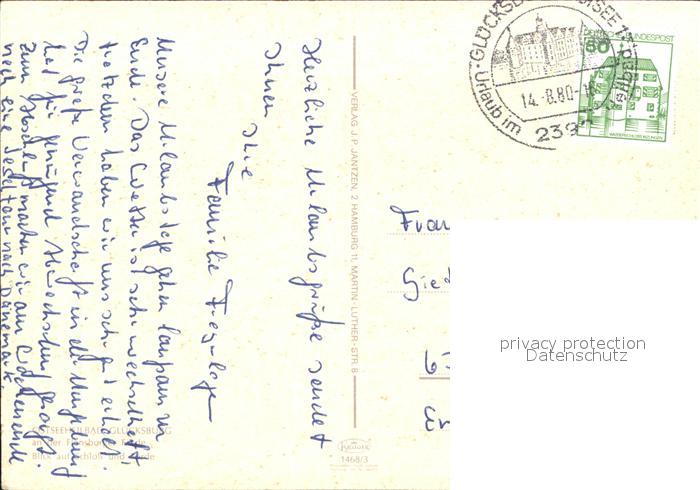 Herzliche Urlaubsgrüße sendet
Ihnen Ihre
Familie
Unsere Urlaubstage gehen langsam zu
Ende. Das Wetter ist sehr wechselhaft
trotzdem haben wir uns sehr gut erholt.
Die große Verwandschaft in der Umgebung
hat für genügend Abwechslung gesorgt.
Zum Abschluß machen wir am Wochenende
noch eine Inseltour nach Dänemark
OSTSEEHEILBAD GLÜCKSBURG
an der Flensburger Förde
Blick auf Schloß und Förde
VERLAG J. P. JANTZEN, 2 HAMBURG 11, MARTIN-LUTHER-STR. 8
Krüger
1468/3
Urlaub im
14.-8.80-
239
DEUTSCHE BUNDESPOST
50
WASSERSCHLOSS INZLINGEN
Frau
privacy protection
Datenschutz